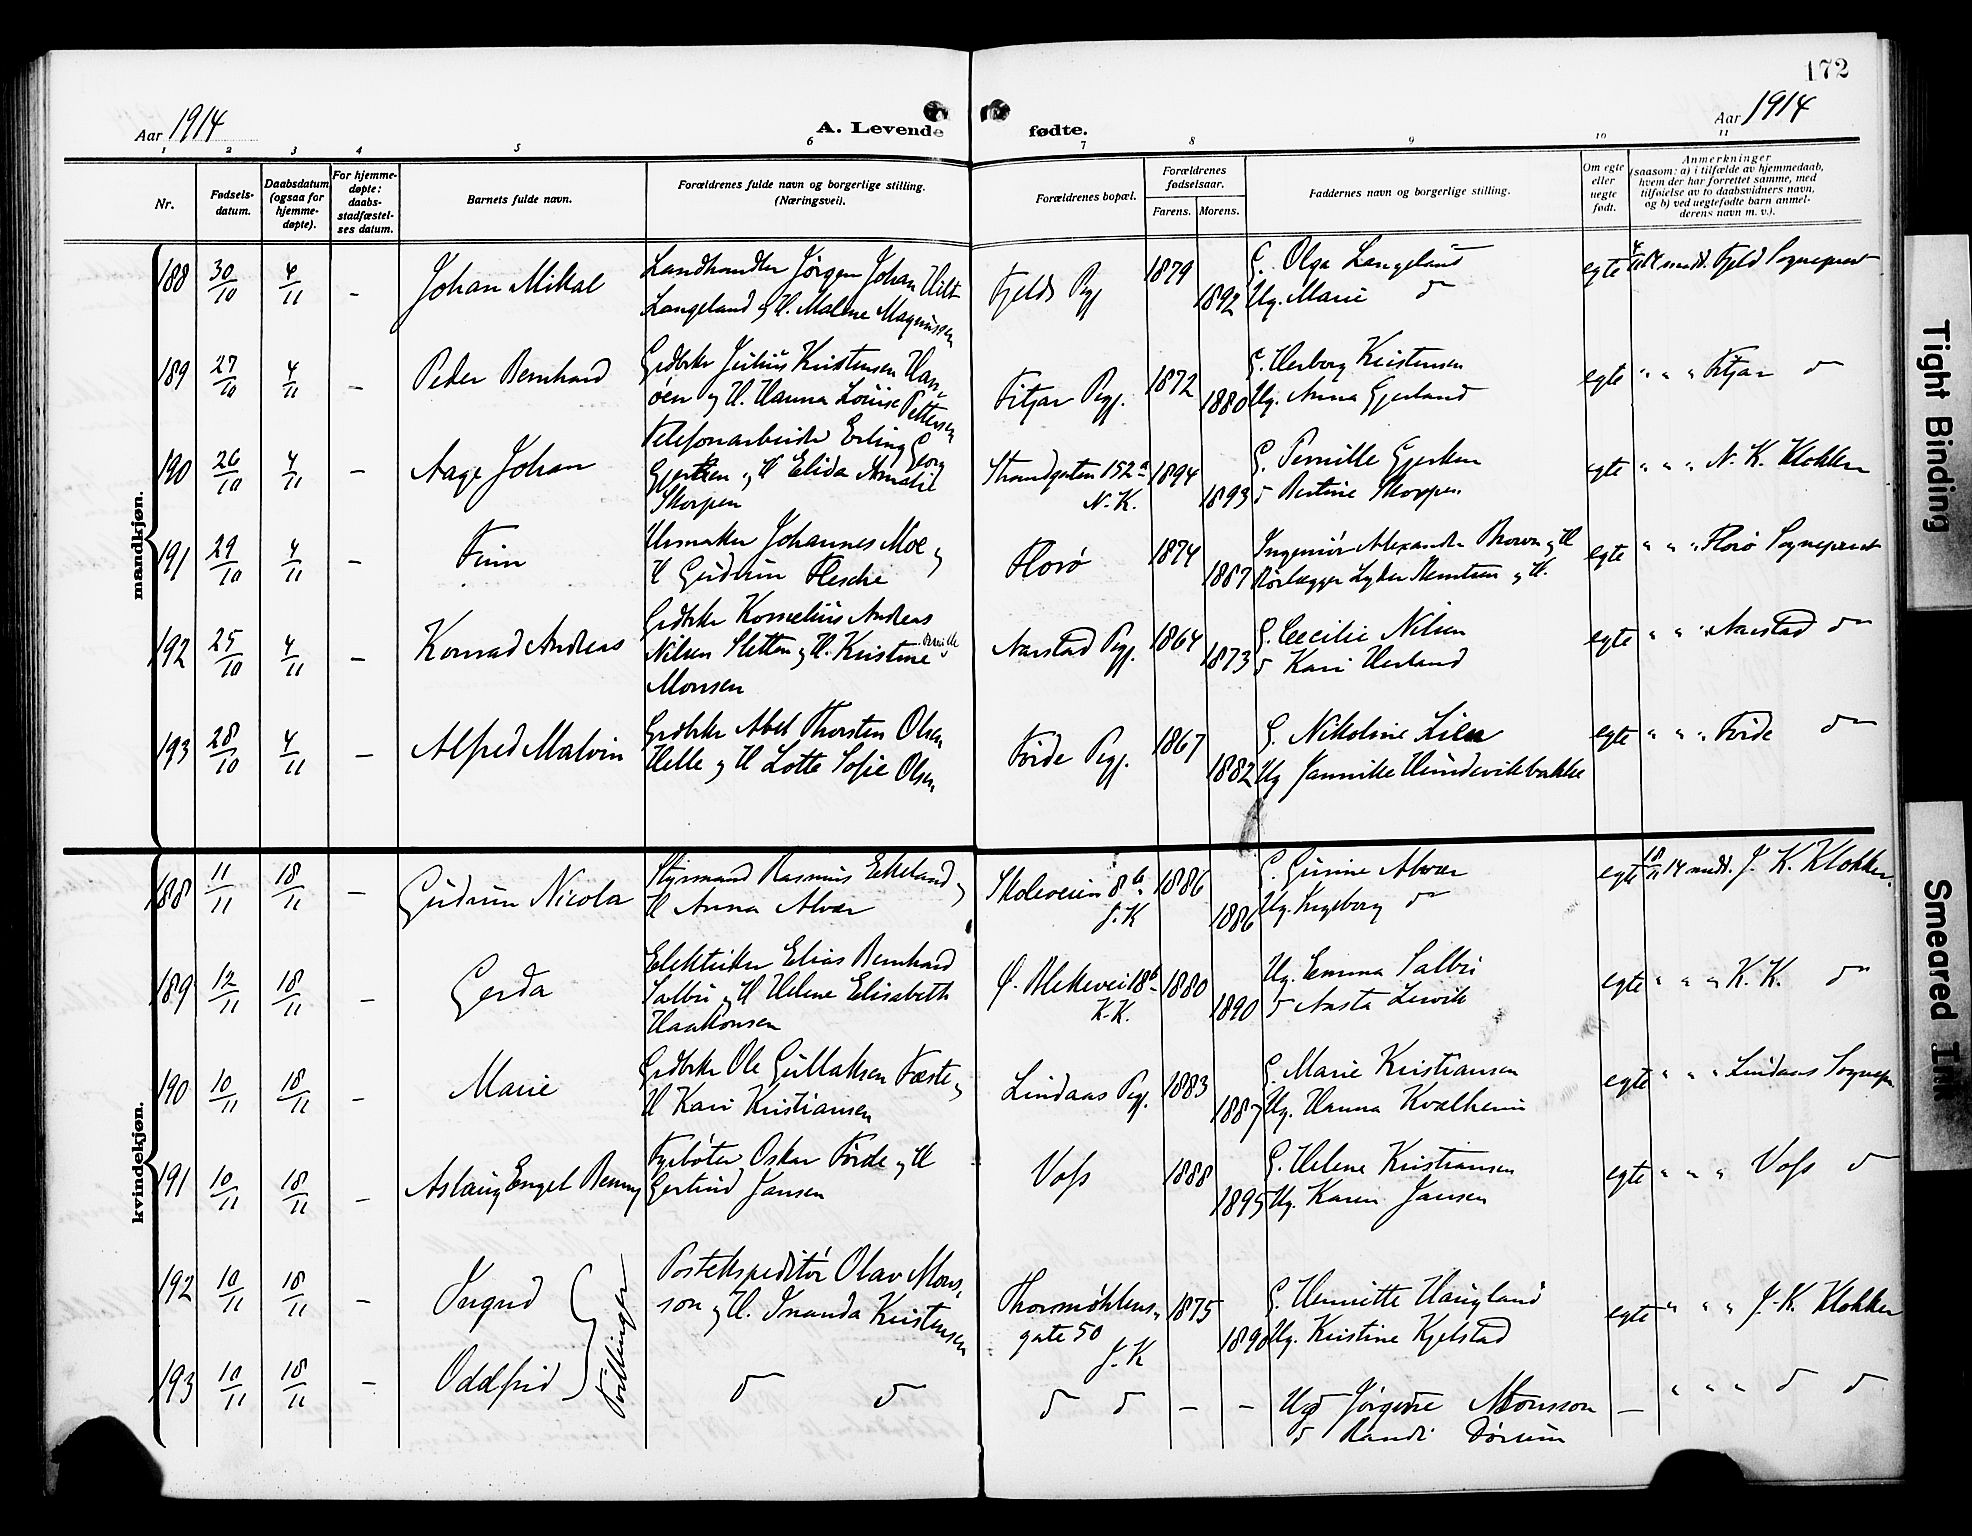 172
Aar 1914
A. Levende fødte.
Aar 1914
1 2 3 4 5 6 7 8 9 10 11
Nr.
Fødsels-
datum.
Daabsdatum
(ogsaa for
hjemme-
døpte).
For hjemme-
døpte:
daabs-
stadfæstel-
ses datum.
Barnets fulde navn.
Forældrenes fulde navn og borgerlige stilling.
(Næringsvei).
Forældrenes bopæl.
Forældrenes
fødselsaar.
Farens. Morens.
Faddernes navn og borgerlige stilling.
Om egte
eller
uegte
født.
Anmerkninger
(saasom: a) i tilfælde av hjemmedaab,
hvem der har forrettet samme, med
tilføielse av to daabsvidners navn,
og b) ved uegtefødte barn anmel-
derens navn m. v.).
mandkjøn.
188 30/10 4/11 - Johan Mikal
Landhandler Jørgen Johan
Langeland og H. Malene Magnussen
Fjelds Pgj 1879 1892
G. Olga Langeland
Ug. Marie do
egte 4/11 14 medd. Fjeld Sogneprest
189 27/10 4/11 - Peder Bernhard
Grdbrker Julius Kristensen Han-
øen og H. Hanna Louise Pettersen
Fitjar Pgj. 1872 1880
G. Herborg Kristensen
Ug. Anna Gjerland
egte " " " Fitjar do
190 26/10 4/11 - Aage Johan
Telefonarbeider Erling Georg
Gjertsen og H Elida Amalie
Skorpen
Strandgaten 152 a
N. K.
1894 1893
G. Pernille Gjertsen
do Bertine Skorpen
egte " " " N. K. Klokker
191 29/10 4/11 - Finn
Urmaker Johannes Moe og
H Gudrun Flesche
Florø 1874 1887
Ingeniør Alexander Brown og H
Rørlægger Lyder Berntsen og H.
egte " " " Florø Sogneprest
192 25/10 4/11 - Konrad Andreas
Grdbrker Kornelius Andreas
Nilsen Sletten og H. Kristine Pernille
Monsen
Narstad Pgj. 1864 1873
G. Cecilie Nilsen
do Kari Herland
egte " " " Narstad do
193 28/10 4/11 - Alfred Malvin
Grdbrker Abel Thorsten Olsen
Helle og H Lotte Sofie Olsen
Førde Pgj. 1867 1882
G. Nikoline Lien
Ug Jannikke
egte " " " Førde do
kvindekjøn.
188 11/11 18/11 - Gudrun Nicola
Styrmand Rasmus Eikeland og
H Anna Alver
Skoleveien 8 b
J. K
1886 1886
G. Gurine Alver
Ug. Ingeborg do
egte 18/11 14 medd. J. K. Klokker.
189 12/11 18/11 - Gerda
Elektriker Elias Bernhard
Salbu og H Helene Elisabeth
Haakonsen
Ø. Blekevei 18 b
K. K.
1880 1890
Ug. Emma Salbu
do Aasta Lervik
egte " " " K. K. do
190 10/11 18/11 - Marie
Grdbrker Ole Gullaksen Fæste og
H Kari Kristiansen
Lindaas Pgj. 1883 1887
G. Marie Kristiansen
Ug. Hanna Kvalheim
egte " " " Lindaas Sognepr
191 10/11 18/11 - Aslaug Engel Benny
Fyrbøter Oskar Førde og H
Gertrud Jansen
Voss 1888 1895
G. Helene Kristiansen
Ug. Karen Jansen
egte " " " Voss do
192 10/11 18/11 - Ingrid
Tvillinger
Postekspeditør Olav Mons-
son og H. Inanda Kristensen
Thormøhlens-
gate 50
J. K
1875 1890
G. Henriette Haugland
Ug. Kristine Kjelstad
egte " " " J. K. Klokker
193 10/11 18/11 - Oddfrid
do do
do do - -
Ug Jørgine Monsson
do Randi Dørum
- " " " do do
Tight Binding
Smeared Ink